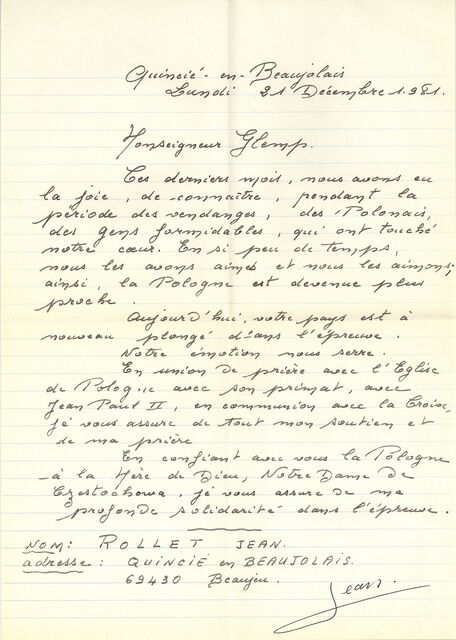 Quincié-en-Beaujolais
Lundi 21 Décembre 1.981.
Monseigneur Glemp.
Ces derniers mois, nous avons eu
la joie, de connaître, pendant la
période des vendanges, des Polonais,
des gens formidables, qui ont touché
notre cœur. En si peu de temps,
nous les avons aimés et nous les aimons;
ainsi, la Pologne est devenue plus
proche.
Aujourd'hui, votre pays est à
nouveau plongé dans l'épreuve.
Notre émotion nous serre.
En union de prière avec l'Eglise
de Pologne avec son primat, avec
Jean Paul II, en communion avec la Croix,
je vous assure de tout mon soutien et
de ma prière
En confiant avec vous la Pologne
à la Mère de Dieu, Notre Dame de
Czestochowa, je vous assure de ma
profonde solidarité dans l'épreuve.
NOM: ROLLET JEAN.
adresse: QUINCIÉ en BEAUJOLAIS.
69430 Beaujeu.
Jean.